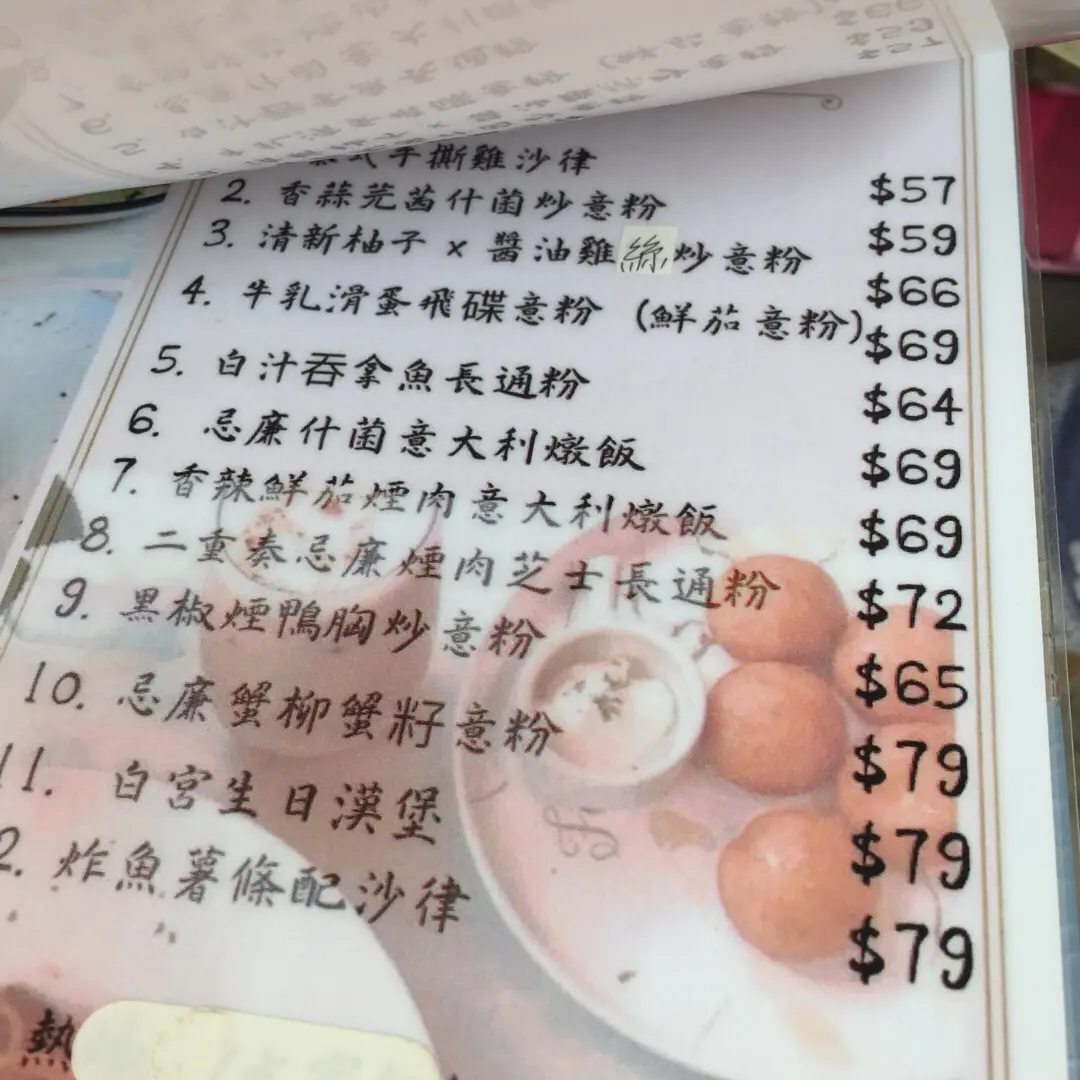 手撕雞沙律 $57
2. 香蒜芫茜什菌炒意粉 $59
3. 清新柚子 x 醬油雞絲炒意粉 $66
4. 牛乳滑蛋飛碟意粉 (鮮茄意粉) $69
5. 白汁吞拿魚長通粉 $64
6. 忌廉什菌意大利燉飯 $69
7. 香辣鮮茄煙肉意大利燉飯 $69
8. 二重奏忌廉煙肉芝士長通粉 $72
9. 黑椒煙鴨胸炒意粉 $65
10. 忌廉蟹柳蟹籽意粉 $79
11. 白宮生日漢堡 $79
2. 炸魚薯條配沙律 $79
熱